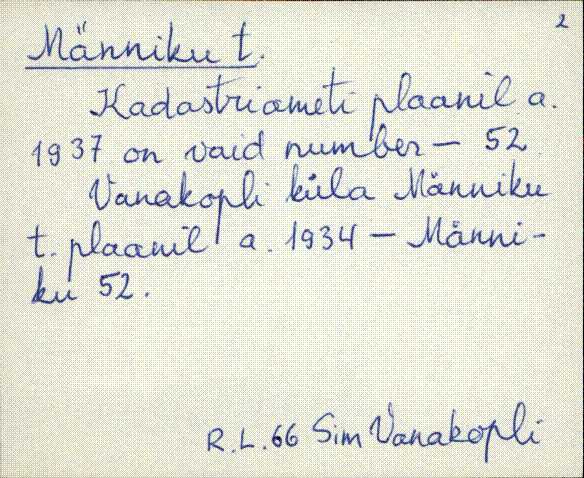 2
Männiku t.
Kadastriameti plaanil a.
1937 on vaid number – 52
Vanakopli küla Männiku
t. plaanil a. 1934 – Männi-
ku 52.
R.L.66 Sim Vanakopli